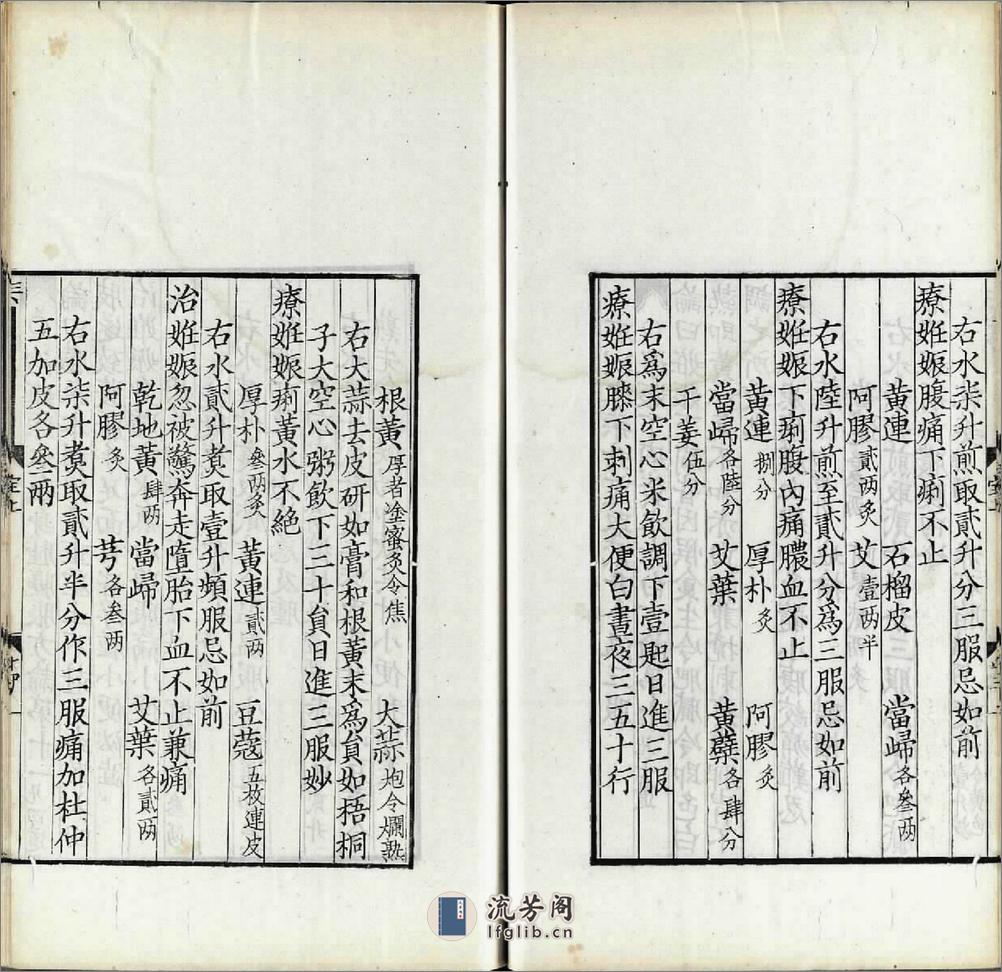 右水柒升煎取貳升分三服忌如前
療姙娠腹痛下痢不止
黃連 石榴皮 當歸各叄两
阿膠貳两炙 艾壹两半
右水陸升煎至貳升分爲三服忌如前
療姙娠下痢腹內痛膿血不止
黃連捌分 厚朴炙 阿膠炙
當歸各陸分 艾葉 黃蘗各肆分
干姜伍分
右爲末空心米飲調下壹匙日進三服
療姙娠膝下刺痛大便白晝夜三五十行
根黃厚者塗蜜炙令焦 大蒜炮令爛熟
右大蒜去皮研如膏和根黃末爲貟如捂桐
子大空心粥飲下三十貟日進三服妙
療姙娠痢黃水不絶
厚朴叄两炙 黃連貳两 豆蔻五枚連皮
右水貳升煑取壹升頻服忌如前
治姙娠忽被驚奔走墮胎下血不止兼痛
乾地黃肆两 當歸 艾葉各貳两
阿膠炙 芎各叄两
右水柒升煑取貳升半分作三服痛加杜仲
五加皮各叄兩
流芳阁
lfglib.cn